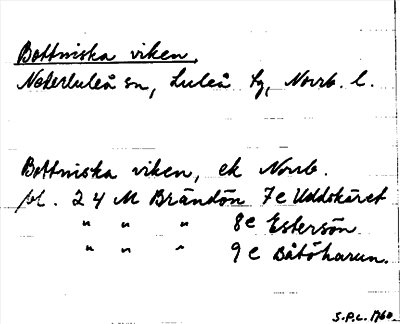 Bottniska viken,
Nederluleå sn, Luleå tg, Norrb. l.
Bottniska viken, ek Norrb.
bl. 24 M Brändön 7e Uddskäret
" " " 8e Estersön
" " " 9e Båtöharun.
S.P.L. 1960.